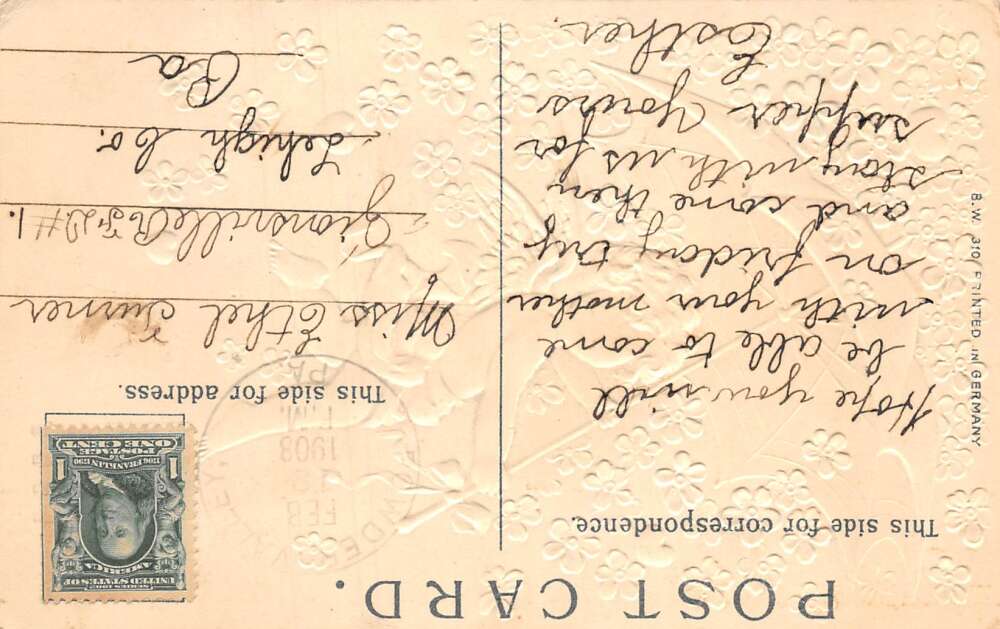 POST CARD.
This side for correspondence.
Hope you will
be able to come
with your mother
on friday try
and come then
stay with us for
supper Yours
Esther.
This side for address.
SERIES 1902
UNITED STATES OF
AMERICA
1706 FRANKLIN 1790
1 1
POSTAGE
ONE CENT
FEB
1908
PA
Miss Ethel Turner
Zionsville R.F.D #1.
Lehigh Co.
Pa
B.W. 310, PRINTED IN GERMANY